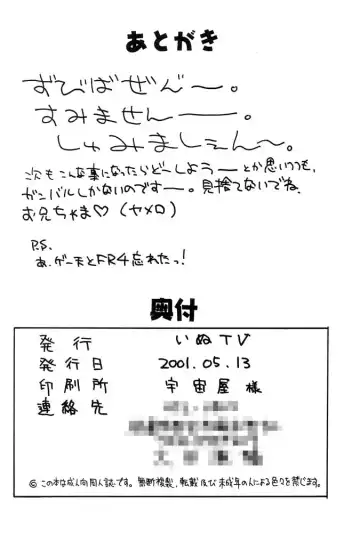 あとがき
ずびばぜんー。
すみませんー。
しゅみましぇん〜。
次もこんな事になったらどーしようーとか思いつつも、
ガンバルしかないのですー。見捨てないでね、
お兄ちゃま♡(ヤメロ)
P.S.
あ、ゲー天とFR4忘れたっ!
奥付
発行 いぬTV
発行日 2001.05.13
印刷所 宇宙屋様
連絡先
© この本は成人向同人誌です。無断複製、転載及び未成年の人による色々を禁じます。